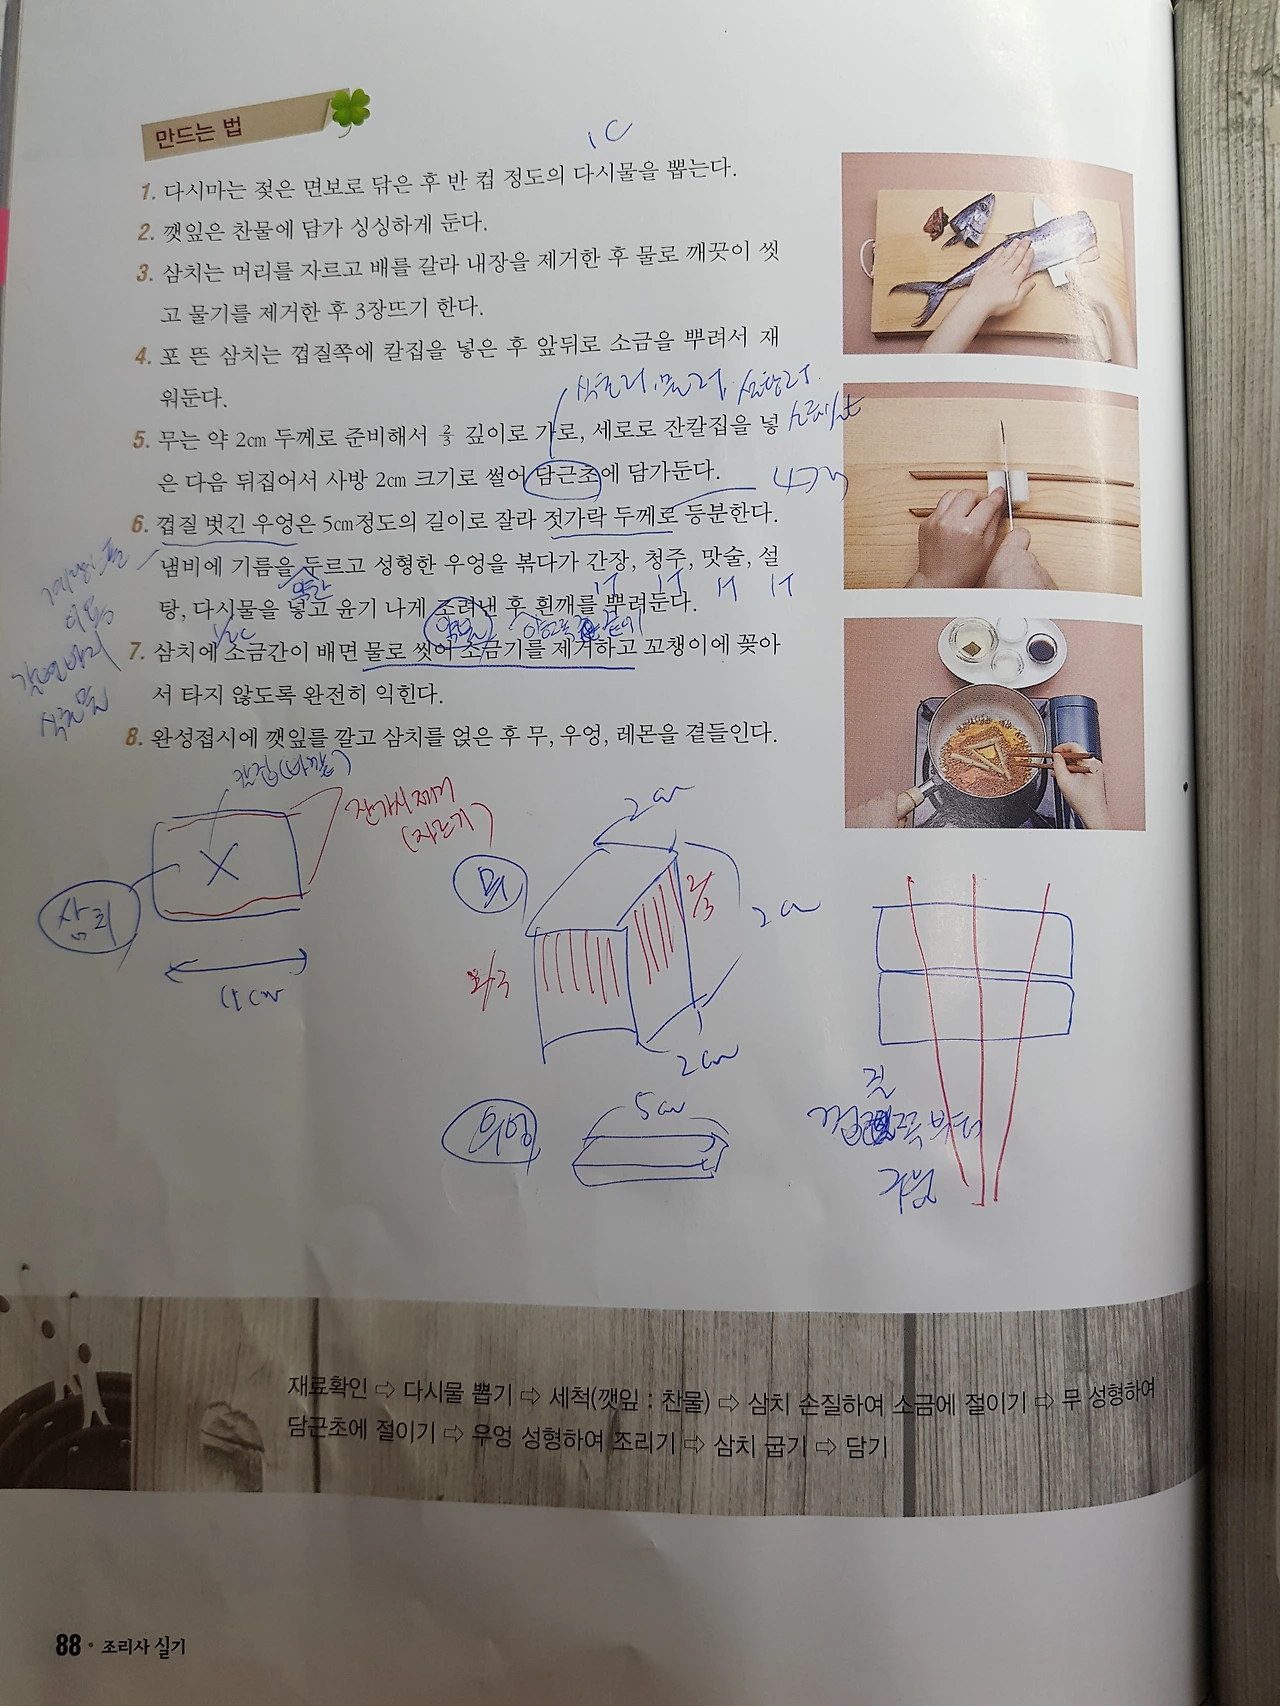 만드는 법
1C
1. 다시마는 젖은 면보로 닦은 후 반 컵 정도의 다시물을 뽑는다.
2. 깻잎은 찬물에 담가 싱싱하게 둔다.
3. 삼치는 머리를 자르고 배를 갈라 내장을 제거한 후 물로 깨끗이 씻
고 물기를 제거한 후 3장뜨기 한다.
4. 포 뜬 삼치는 껍질쪽에 칼집을 넣은 후 앞뒤로 소금을 뿌려서 재
워둔다.
5. 무는 약 2cm 두께로 준비해서 2/3 깊이로 가로, 세로로 잔칼집을 넣
은 다음 뒤집어서 사방 2cm 크기로 썰어 담근초에 담가둔다.
4개
6. 껍질 벗긴 우엉은 5cm정도의 길이로 잘라 젓가락 두께로 등분한다.
냄비에 기름을 두르고 성형한 우엉을 볶다가 간장, 청주, 맛술, 설
약간
1T 1T 1T 1T
탕, 다시물을 넣고 윤기 나게 조려낸 후 흰깨를 뿌려둔다.
1/2C
7. 삼치에 소금간이 배면 물로 씻어 소금기를 제거하고 꼬챙이에 꽂아
서 타지 않도록 완전히 익힌다.
8. 완성접시에 깻잎를 깔고 삼치를 얹은 후 무, 우엉, 레몬을 곁들인다.
칼집(바깥)
잔가시 제거
삼치
무
2cm
2/3
2cm
2cm
우엉
5cm
재료확인 ⇨ 다시물 뽑기 ⇨ 세척(깻잎 : 찬물) ⇨ 삼치 손질하여 소금에 절이기 ⇨ 무 성형하여
담근초에 절이기 ⇨ 우엉 성형하여 조리기 ⇨ 삼치 굽기 ⇨ 담기
88 • 조리사 실기